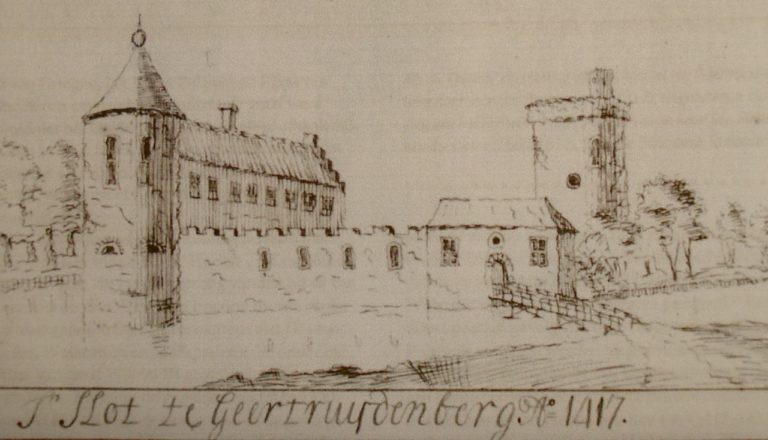 't Slot te Geertruijdenberg. Aº 1417.